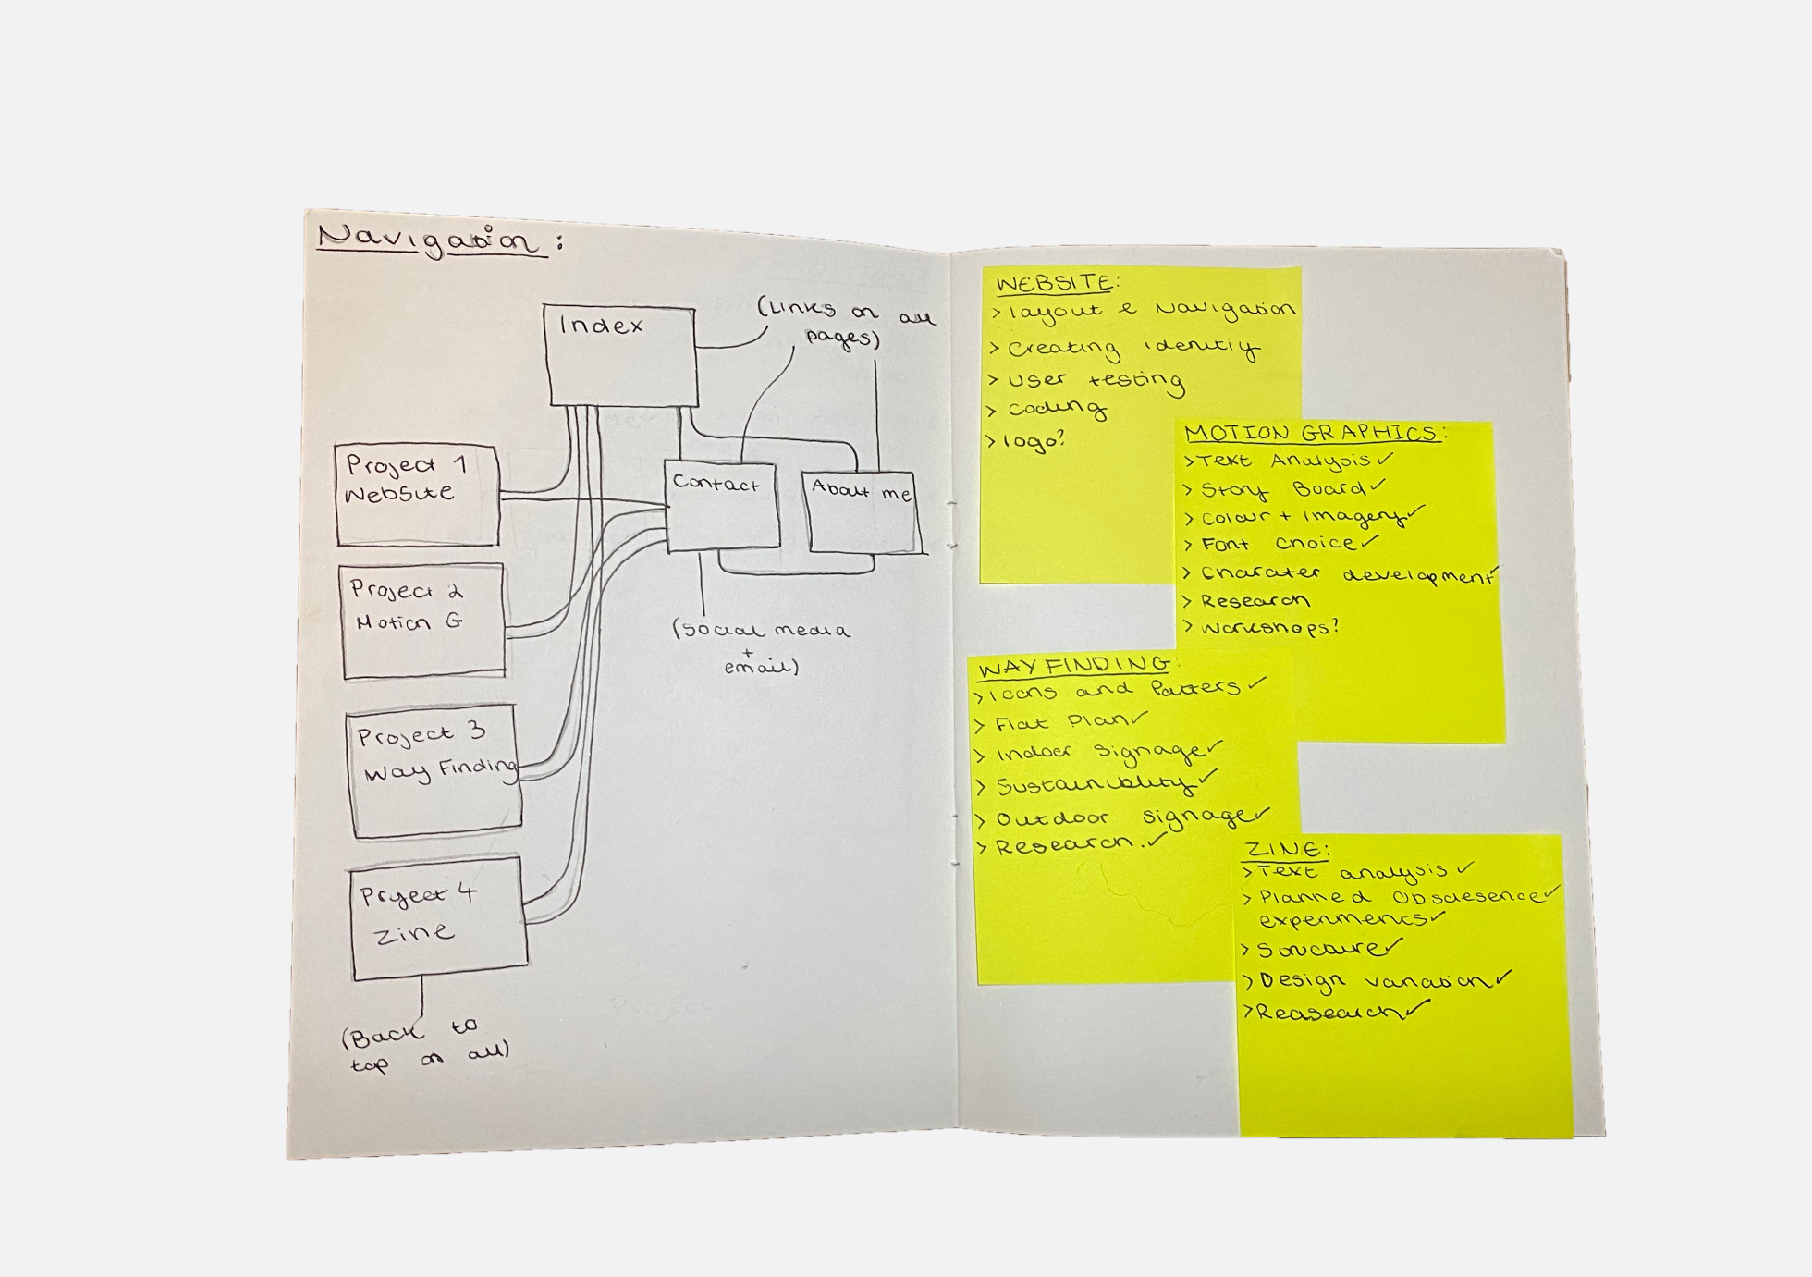 Navigation:
Index
(Links on all
pages)
Project 1
Website
Contact
About me
Project 2
Motion G
(Social media
+
email)
Project 3
Way Finding
Project 4
Zine
(Back to
top on all)
WEBSITE:
> layout & Navigation
> Creating idenitiy
> user testing
> coding
> logo?
MOTION GRAPHICS:
> Text Analysis ✓
> Story Board ✓
> Colour + Imagery ✓
> Font choice ✓
> Charater development
> Research
> Workshops?
WAY FINDING:
> Icons and Patters ✓
> Flat Plan ✓
> Indoor Signage ✓
> Sustainability ✓
> Outdoor Signage ✓
> Research. ✓
ZINE:
> Text analysis ✓
> Planned Obsolesence ✓
experiments ✓
> Design variation ✓
> Reasearch ✓